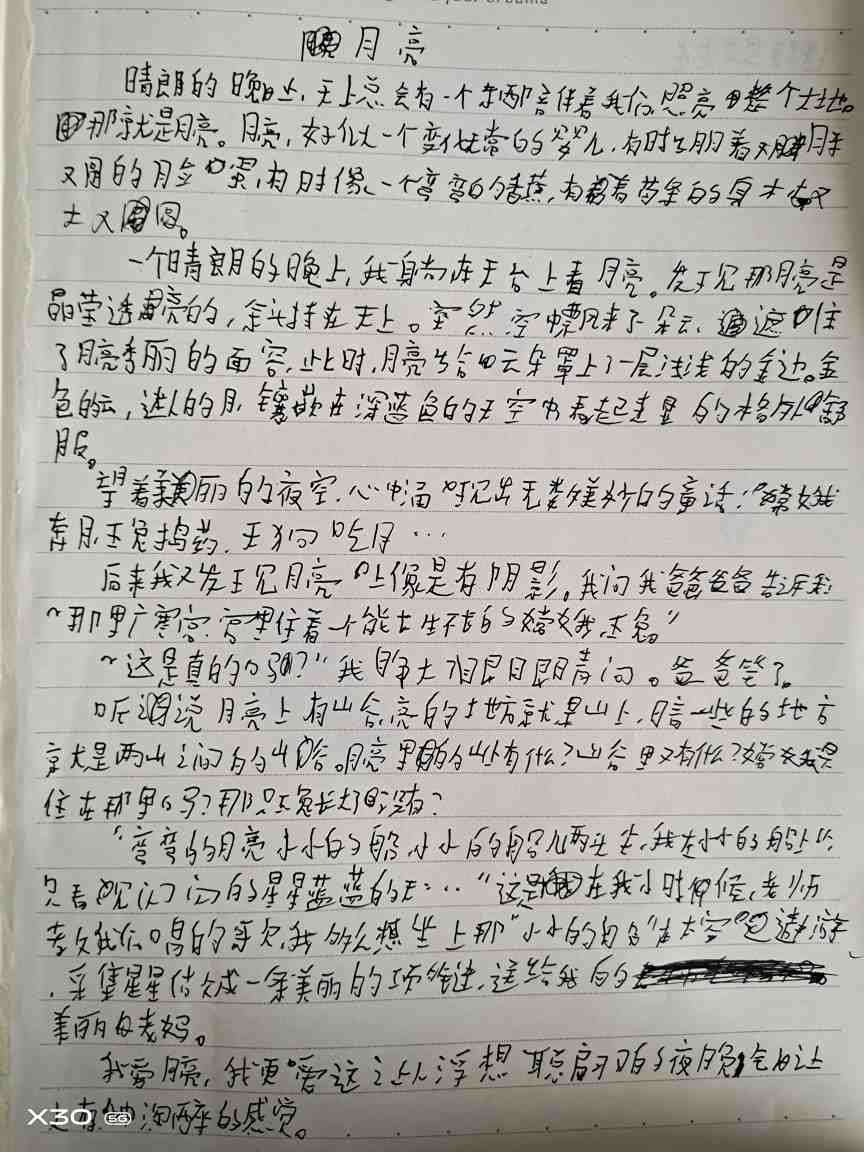 月亮
晴朗的晚上,天上总会有一个东西陪伴着我们照亮整个大地。
那就是月亮。月亮,好似一个变化无常的婴儿,有时朋着又胖
又圆的月金蛋,有时像一个弯弯的香蕉,有着苗条的身才
大又圆。
一个晴朗的晚上,我身尚在天台上看月亮。发现那月亮是
晶莹透亮的,金挂在天上。突然空飘来了朵云,遮住
了月亮秀丽的面容,此时,月亮给云朵罩上了一层浅浅的金边。金
色的云,迷人的月,镶嵌在深蓝色的天空中看起来是的格外舒
服。
望着美丽的夜空,心中涌现出无数美妙的童话:嫦娥
奔月,玉兔捣药,天狗吃月…
后来我又发现月亮上像是有阴影。我问我爸爸爸爸告诉我
“那里广寒宫,宫里住着一个能长生不老的嫦娥,玉兔。”
“这是真的吗?”我睁大眼睛问。爸爸笑了。
听说月亮上有山谷,亮的地方就是山上,暗一些的地方
就是两山之间的山谷。月亮里的山有什么?山谷里又有什么?嫦娥是
住在那里吗?那只玉兔长大了没有?
“弯弯的月亮小小的船,小小的船儿两头尖,我在小小的船上
只看见闪闪的星星蓝蓝的天…”这是在我小时候,老师
教我们唱的歌,我多么想坐上那“小小的船”在太空遨游
,采集星星结成一条美丽的项链,送给我的
美丽的老妈。
我爱月亮,我更爱这让人浮想联翩的夜晚它让
之有种陶醉的感觉。
X30 5G